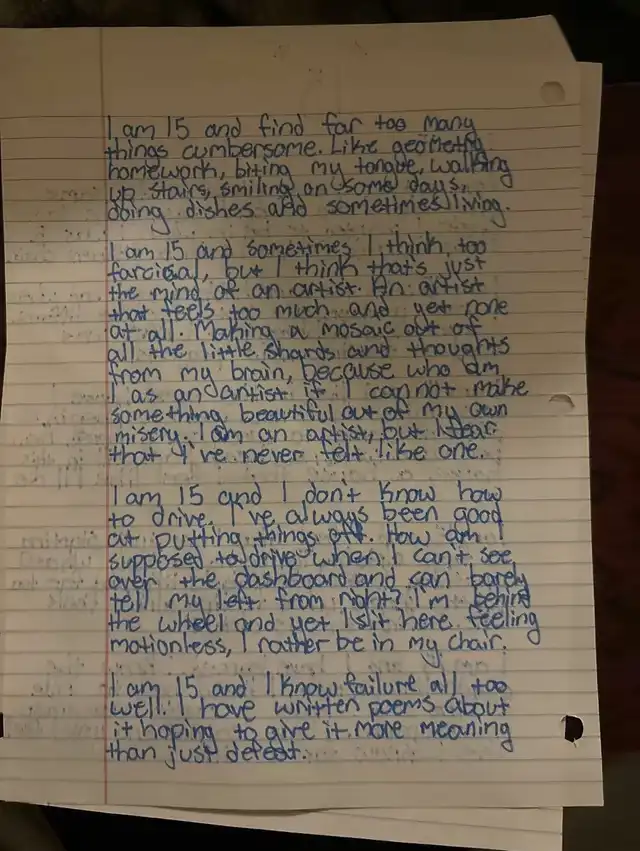 I am 15 and find far too many
things cumbersome. Like geometry
homework, biting my tongue, walking
up stairs, smiling on some days,
doing dishes and sometimes living.
I am 15 and sometimes I think too
farcical, but I think that's just
the mind of an artist. An artist
that feels too much and yet none
at all. Making a mosaic out of
all the little shards and thoughts
from my brain, because who am
I as an artist if I cannot make
something beautiful out of my own
misery. I am an artist, but I fear
that I've never felt like one.
I am 15 and I don't know how
to drive. I've always been good
at putting things off. How am I
supposed to drive when I can't see
over the dashboard and can barely
tell my left from right? I'm behind
the wheel and yet I sit here feeling
motionless, I rather be in my chair.
I am 15 and I know failure all too
well. I have written poems about
it hoping to give it more meaning
than just defeat.